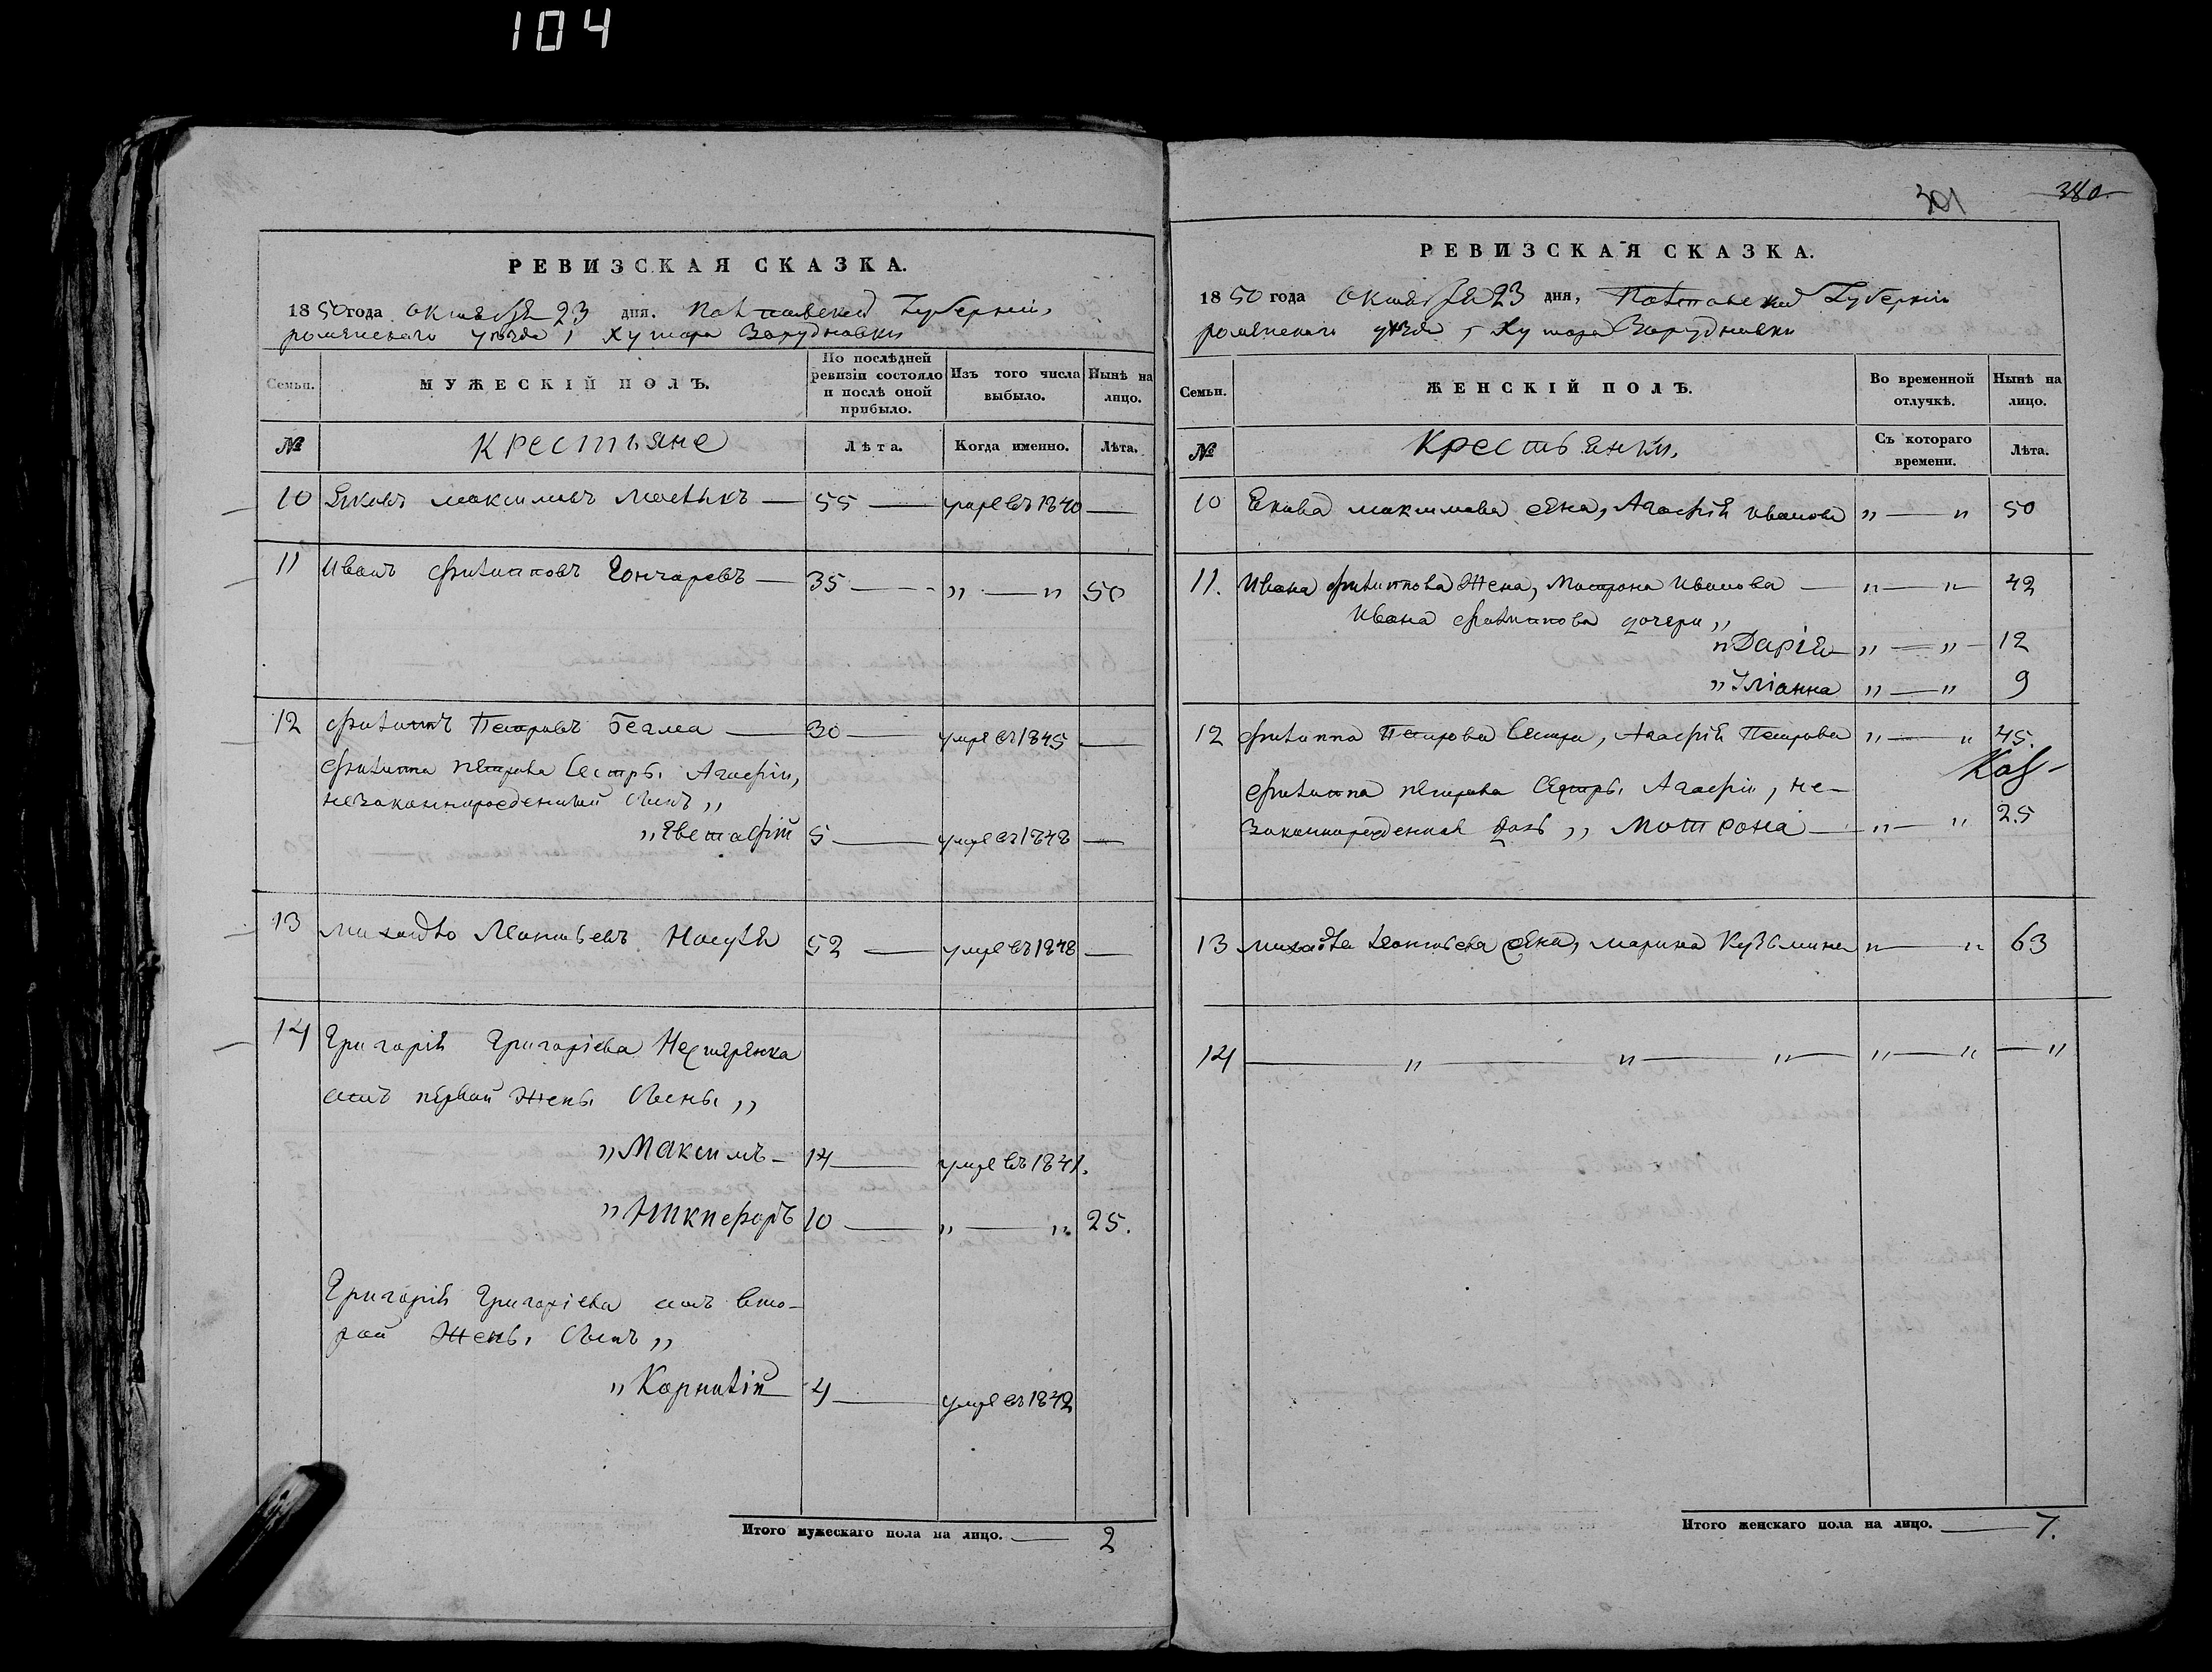 104
РЕВИЗСКАЯ СКАЗКА.
1850 года октября 23 дня. Полтавской Губерніи,
роменскаго уѣзда, Хутора Заруднавки
Семьи. МУЖЕСКІЙ ПОЛЪ. По послѣдней ревизіи состояло и послѣ оной прибыло. Изъ того числа выбыло. Нынѣ на лицо.
№ Крестьяне Лѣта. Когда именно. Лѣта.
10 Яковъ максимовъ — 55 — умре въ 1840 —
11 Иванъ филипповъ Гончаровъ — 35 — „ — „ 50
12 филиппъ Петровъ — 30 — умре въ 1845 —
филиппа петрова Сестры Агафіи,
незаконнорожденный Сынъ „
„ Евстафій 5 — умре въ 1848 —
13 михайло Леонтьевъ 52 — умре въ 1848 —
14 Григорія Григоріева Нестеренка
отъ первой Жены Сыны „
„ Максимъ — 14 — умре въ 1841.
„ Никифоръ 10 — „ — „ 25.
Григорія Григоріева отъ вто-
рой Жены Сынъ „
„ Корнилій 4 — умре въ 1842
Итого мужескаго пола на лицо. — 2
301 380
РЕВИЗСКАЯ СКАЗКА.
1850 года Октября 23 дня, Полтавской Губерніи
роменскаго уѣзда, Хутора Заруднавки
Семьи. ЖЕНСКІЙ ПОЛЪ. Во временной отлучкѣ. Нынѣ на лицо.
№ Крестьянки. Съ котораго времени. Лѣта.
10 Якова максимова жена, Агафія иванова „ — „ 50
11. Ивана филиппова Жена, Мотрона Иванова — „ — „ 42
Ивана филиппова дочери „
„ Дарія — „ — „ — 12
„ Уліанна „ — „ 9
12 филиппа Петрова Сестра, Агафія Петрова „ — „ 45.
филиппа петрова Сестры Агафіи, не-
законнорожденная дочь „ Мотрона — „ — „ 25
13 михайла леонтьева жена, марина Кузьмина „ — „ 63
14 — „ — „ — „ — „ — „ — „
Итого женскаго пола на лицо. — 7.